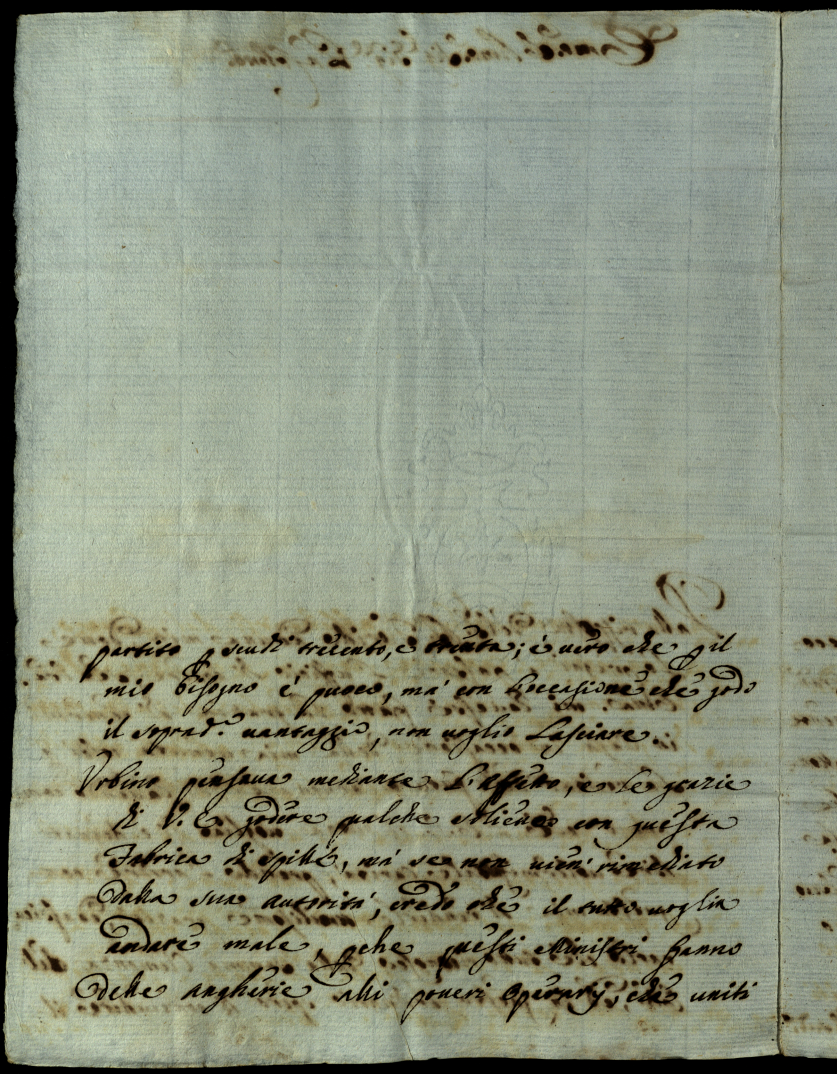 partito p scudi trecento, e trenta; é uero che p il
mio bisogno é puoco, má con l'occasione che godo
il soprad.º uantaggio, non uoglio lasciare.
Vrbino pensaua mediante l'affetto, e le grazie
di V. E. godere qualche solieuo con questa
Fabrica di spille, má se non uien rimediato
dalla sua autoritá, credo che il tutto uoglia
andare male, pche questi Ministri fanno
delle angherie alli poueri operarij, che uniti